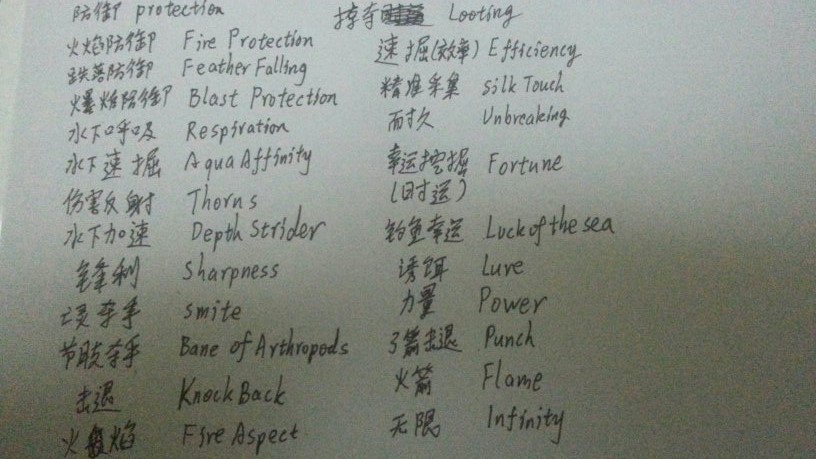 防御 protection
火焰防御 Fire Protection
跌落防御 Feather Falling
爆炸防御 Blast Protection
水下呼吸 Respiration
水下速掘 Aqua Affinity
伤害反射 Thorns
水下加速 Depth Strider
锋利 Sharpness
亡灵杀手 smite
节肢杀手 Bane of Arthropods
击退 KnockBack
火焰 Fire Aspect
掠夺 Looting
速掘(效率) Efficiency
精准采集 silk Touch
耐久 Unbreaking
幸运挖掘 Fortune
(时运)
钓鱼幸运 Luck of the sea
诱饵 Lure
力量 Power
弓箭击退 Punch
火箭 Flame
无限 Infinity